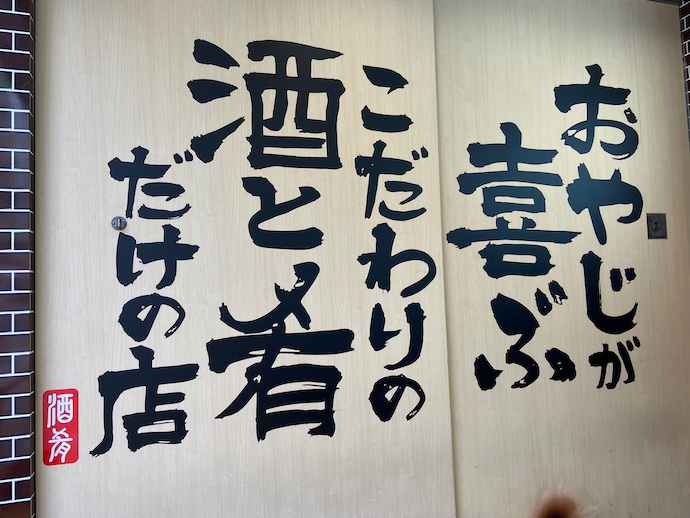 おやじが
喜ぶ
こだわりの
酒と肴
だけの店
酒肴